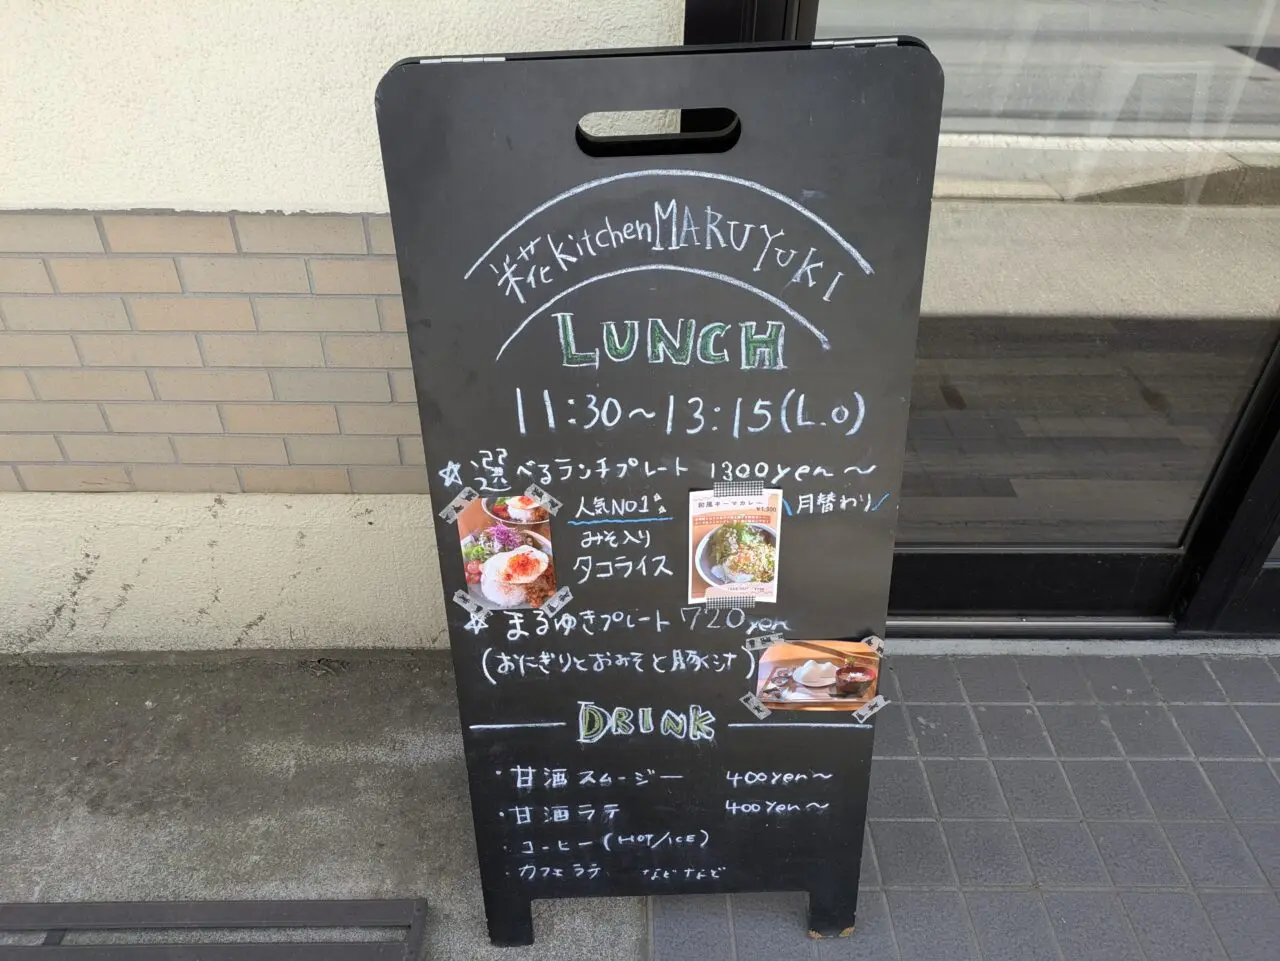 糀kitchen MARUYUKI
LUNCH
11:30〜13:15(L.o)
☆選べるランチプレート 1300yen〜
人気NO1
みそ入り
タコライス
和風キーマカレー
¥1,300
月替わり
☆まるゆきプレート 720yen
(おにぎりとおみそと豚汁)
DRINK
・甘酒スムージー 400yen〜
・甘酒ラテ 400yen〜
・コーヒー(HOT/ICE)
・カフェラテ などなど